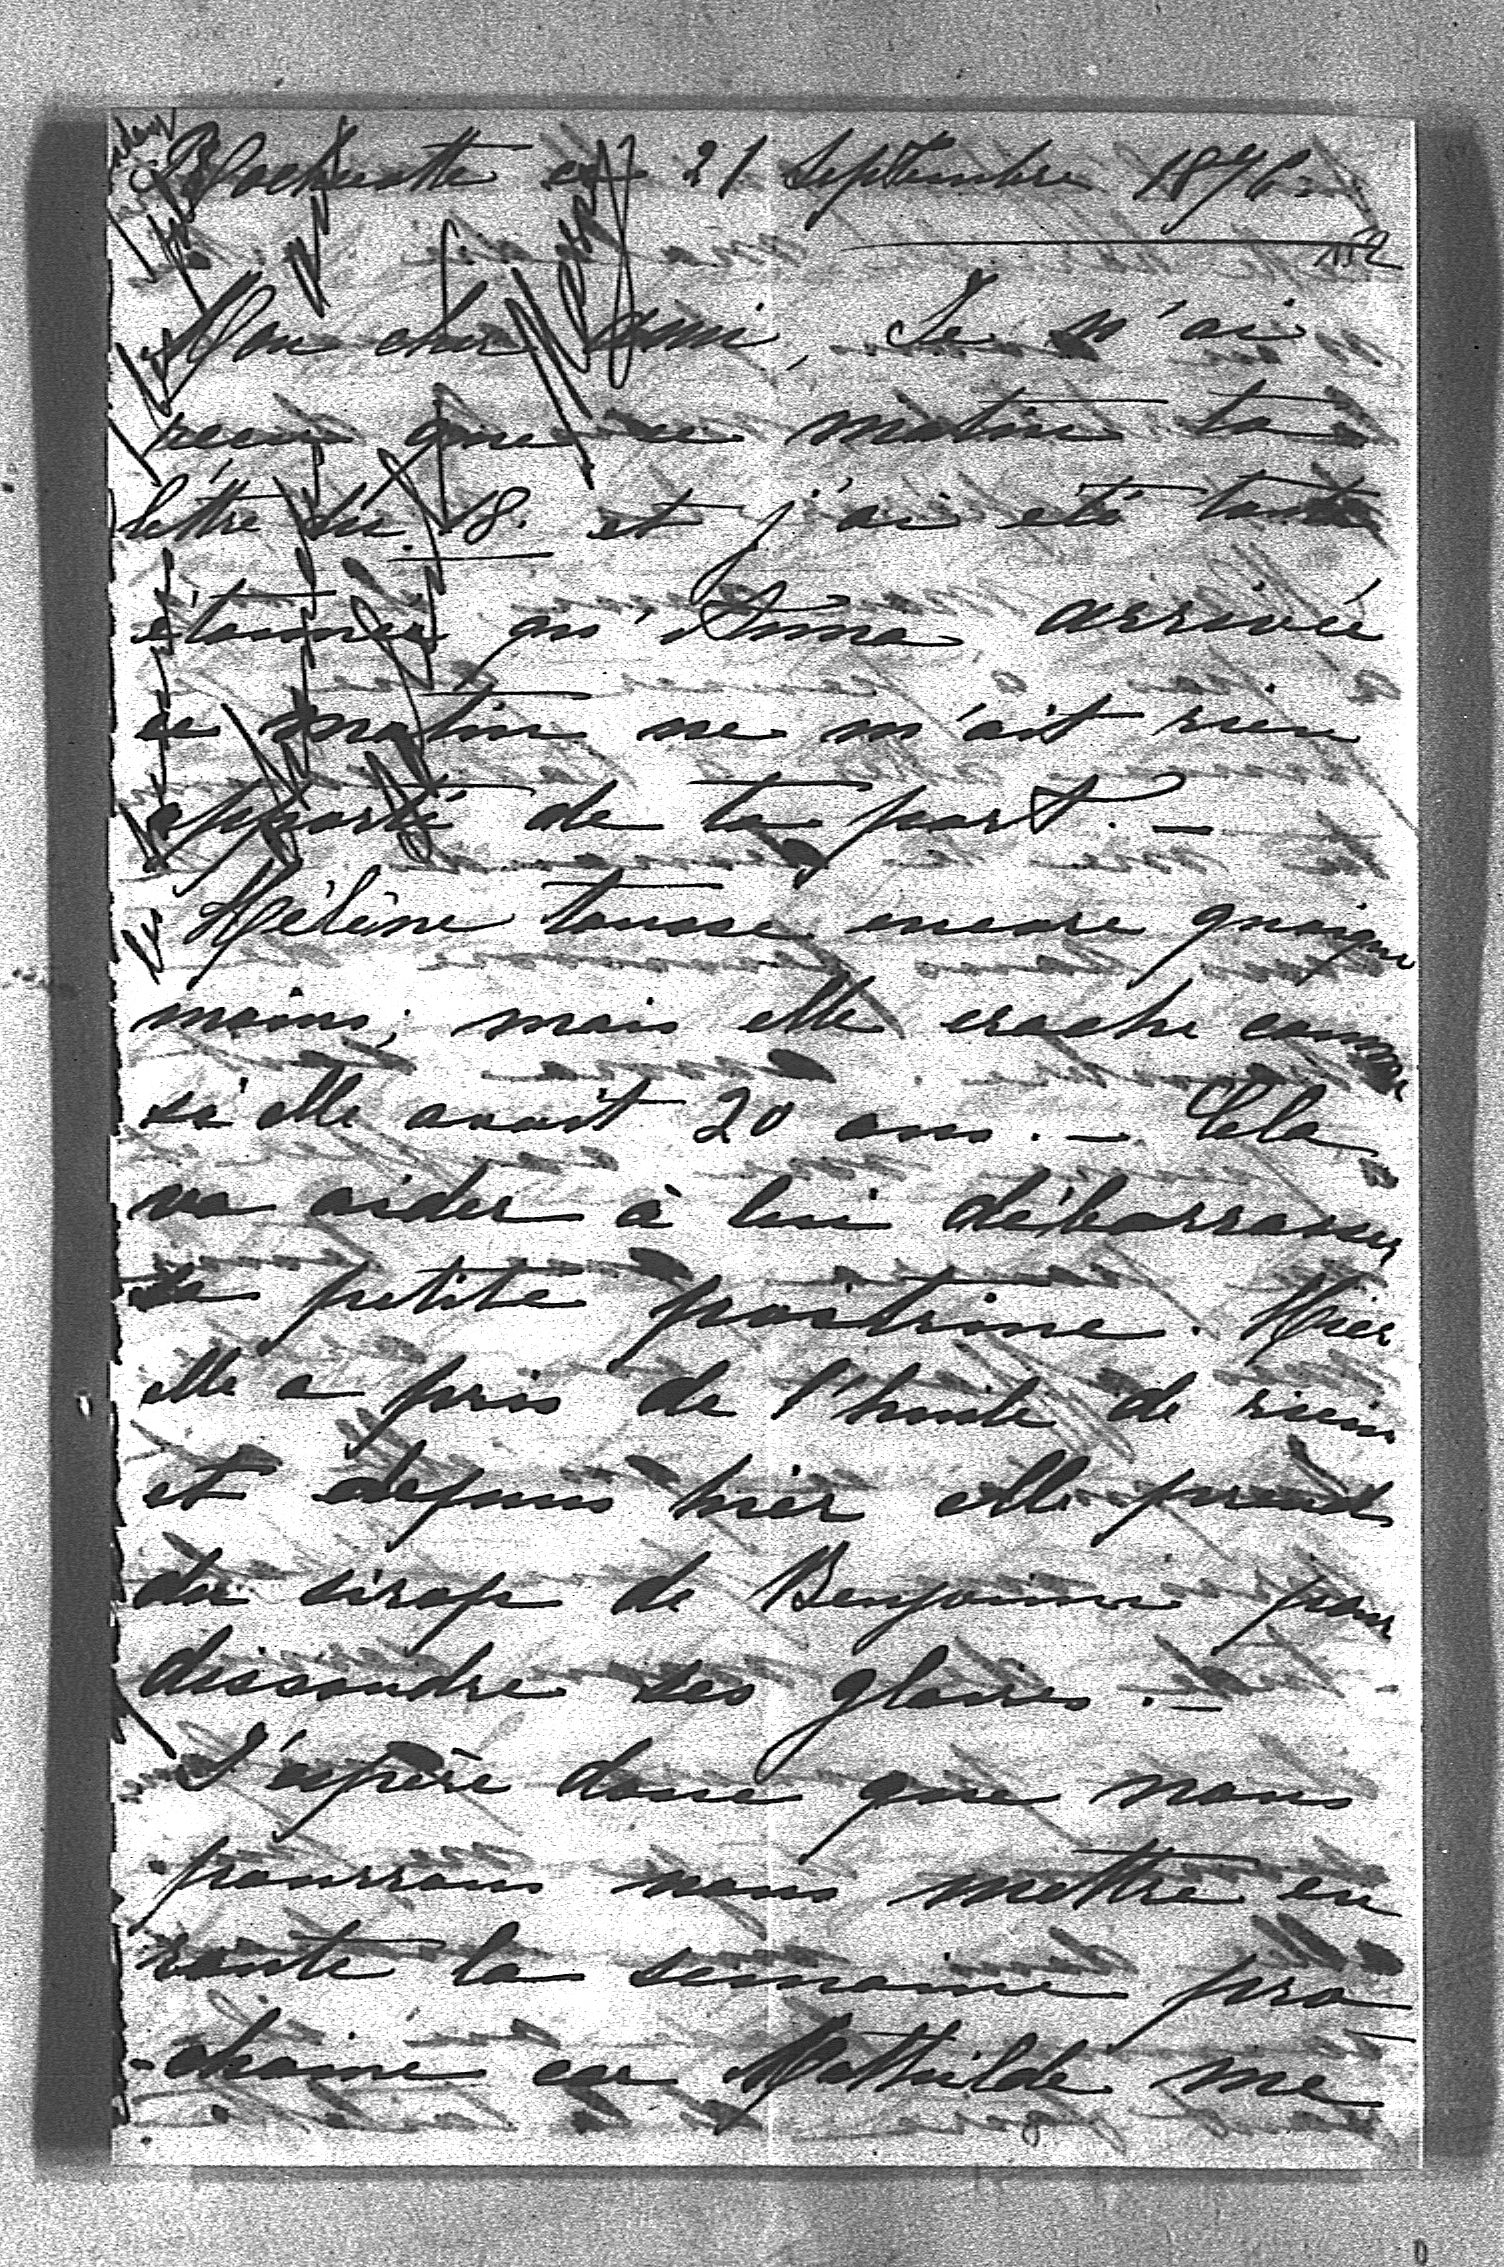 ce 21 Septembre 1876
152
Mon cher ami, Je n'ai
recu que ce matin ta
lettre du 18 et j'ai été toute
étonnée qu'Anna arrivée
ce matin ne m'ait rien
apporté de ta part. —
Hélène tousse encore quoique
moins, mais elle crache comme
si elle avait 20 ans. — Cela
va aider à lui débarrasser
sa petite poitrine. Hier
elle a pris de l'huile de ricin
et depuis hier elle prend
du sirop de Benjouin pour
dissoudre ses glaires. —
J'espère donc que nous
pourrons nous mettre en
route la semaine pro
-chaine car Mathilde me